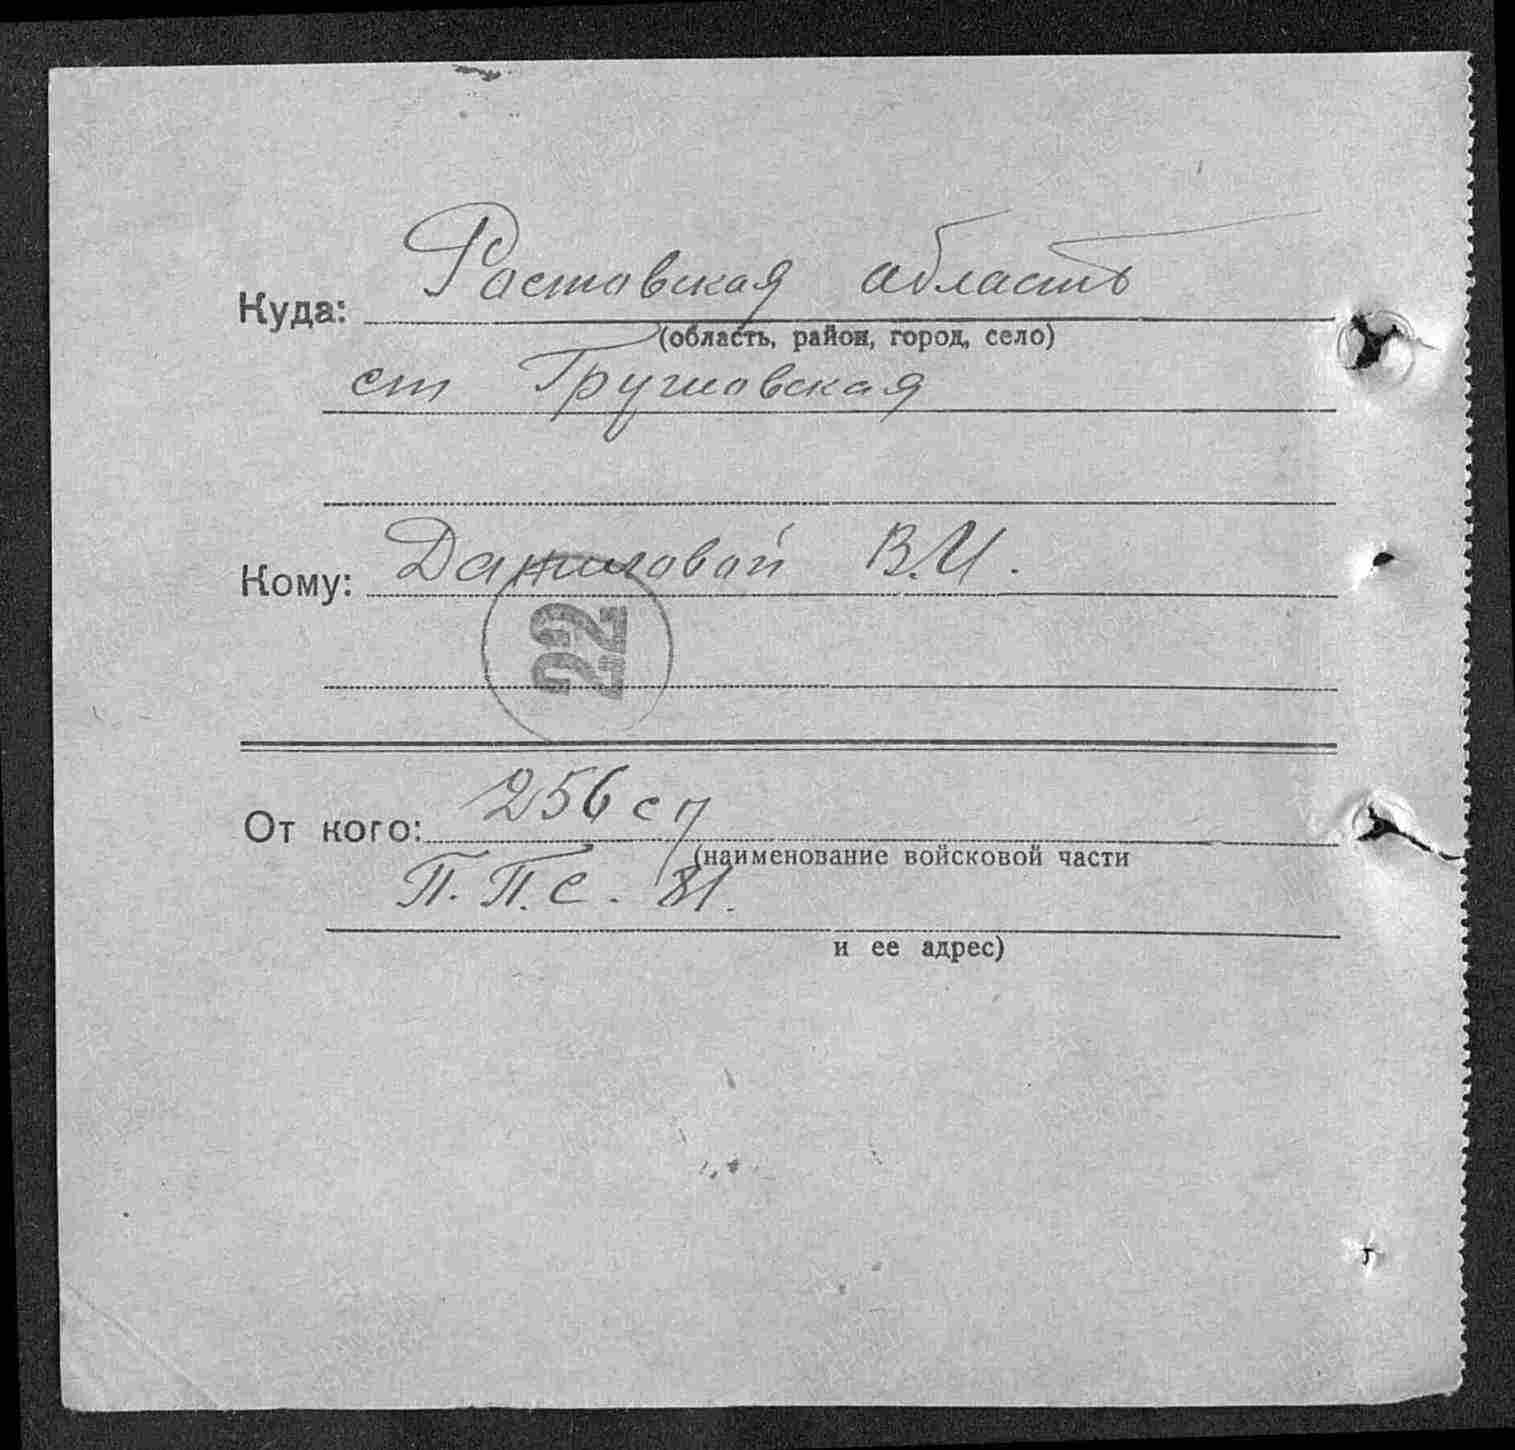 Куда: Ростовская область
(область, район, город, село)
ст Грушовская
Кому: Даниловой В.И.
22
От кого: 256 сп
(наименование войсковой части
П.П.С. 81.
и ее адрес)